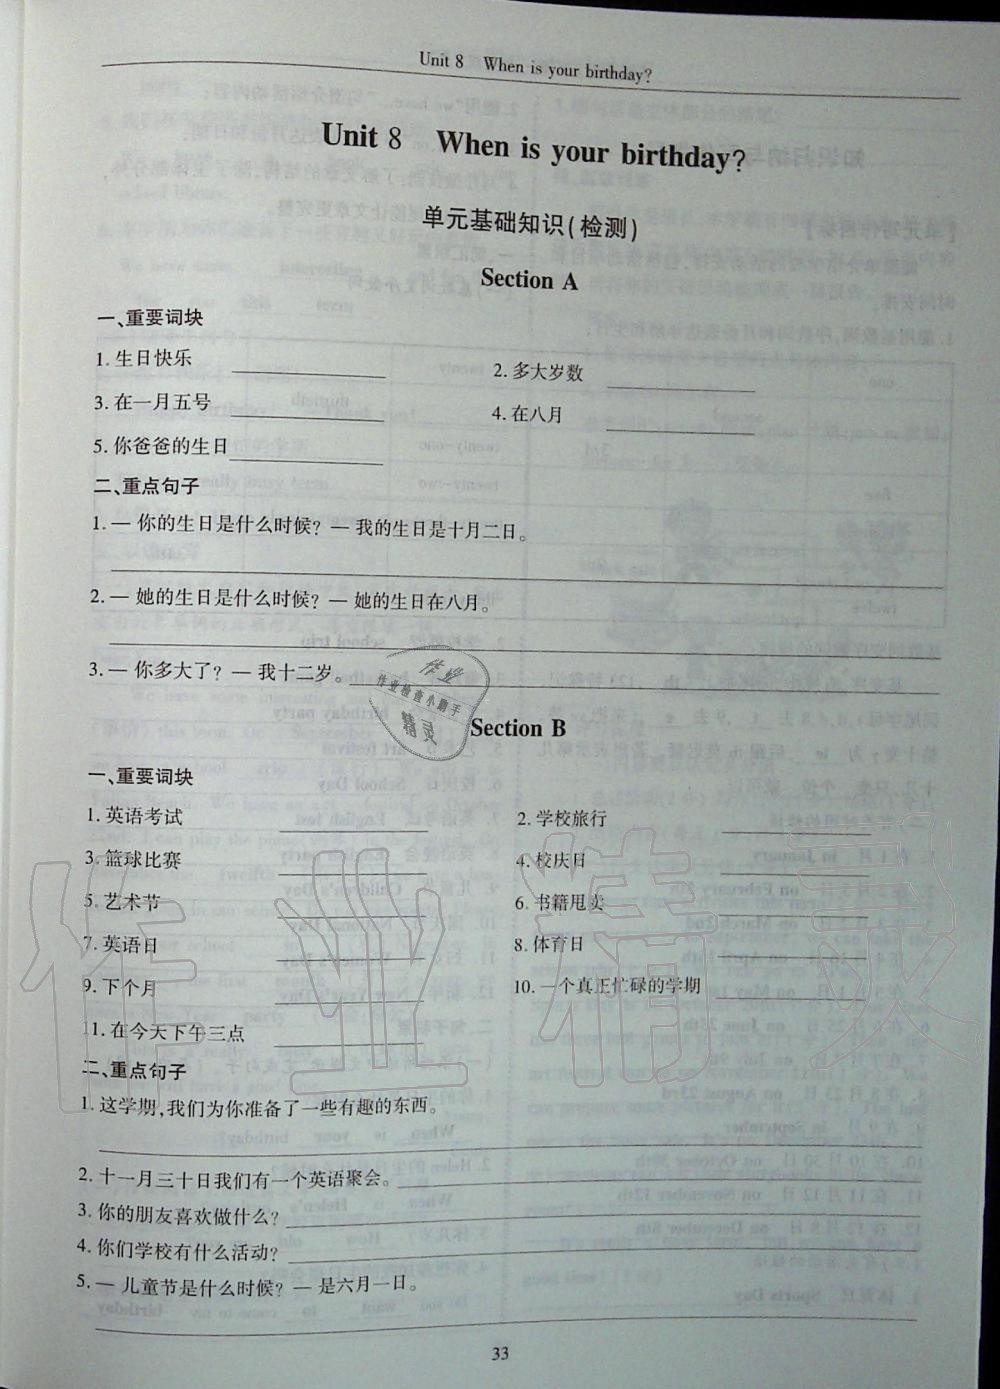 Unit 8 When is your birthday?
Unit 8 When is your birthday?
单元基础知识(检测)
Section A
一、重要词块
1. 生日快乐 ____________ 2. 多大岁数 ____________
3. 在一月五号 ____________ 4. 在八月 ____________
5. 你爸爸的生日 ____________
二、重点句子
1. — 你的生日是什么时候? — 我的生日是十月二日。
2. — 她的生日是什么时候? — 她的生日在八月。
3. — 你多大了? — 我十二岁。
作业
作业检查小助手
精灵
Section B
一、重要词块
1. 英语考试 ____________ 2. 学校旅行 ____________
3. 篮球比赛 ____________ 4. 校庆日 ____________
5. 艺术节 ____________ 6. 书籍甩卖 ____________
7. 英语日 ____________ 8. 体育日 ____________
9. 下个月 ____________ 10. 一个真正忙碌的学期 ____________
11. 在今天下午三点 ____________
二、重点句子
1. 这学期,我们为你准备了一些有趣的东西。
2. 十一月三十日我们有一个英语聚会。
3. 你的朋友喜欢做什么?
4. 你们学校有什么活动?
5. — 儿童节是什么时候? — 是六月一日。
33
作业精灵